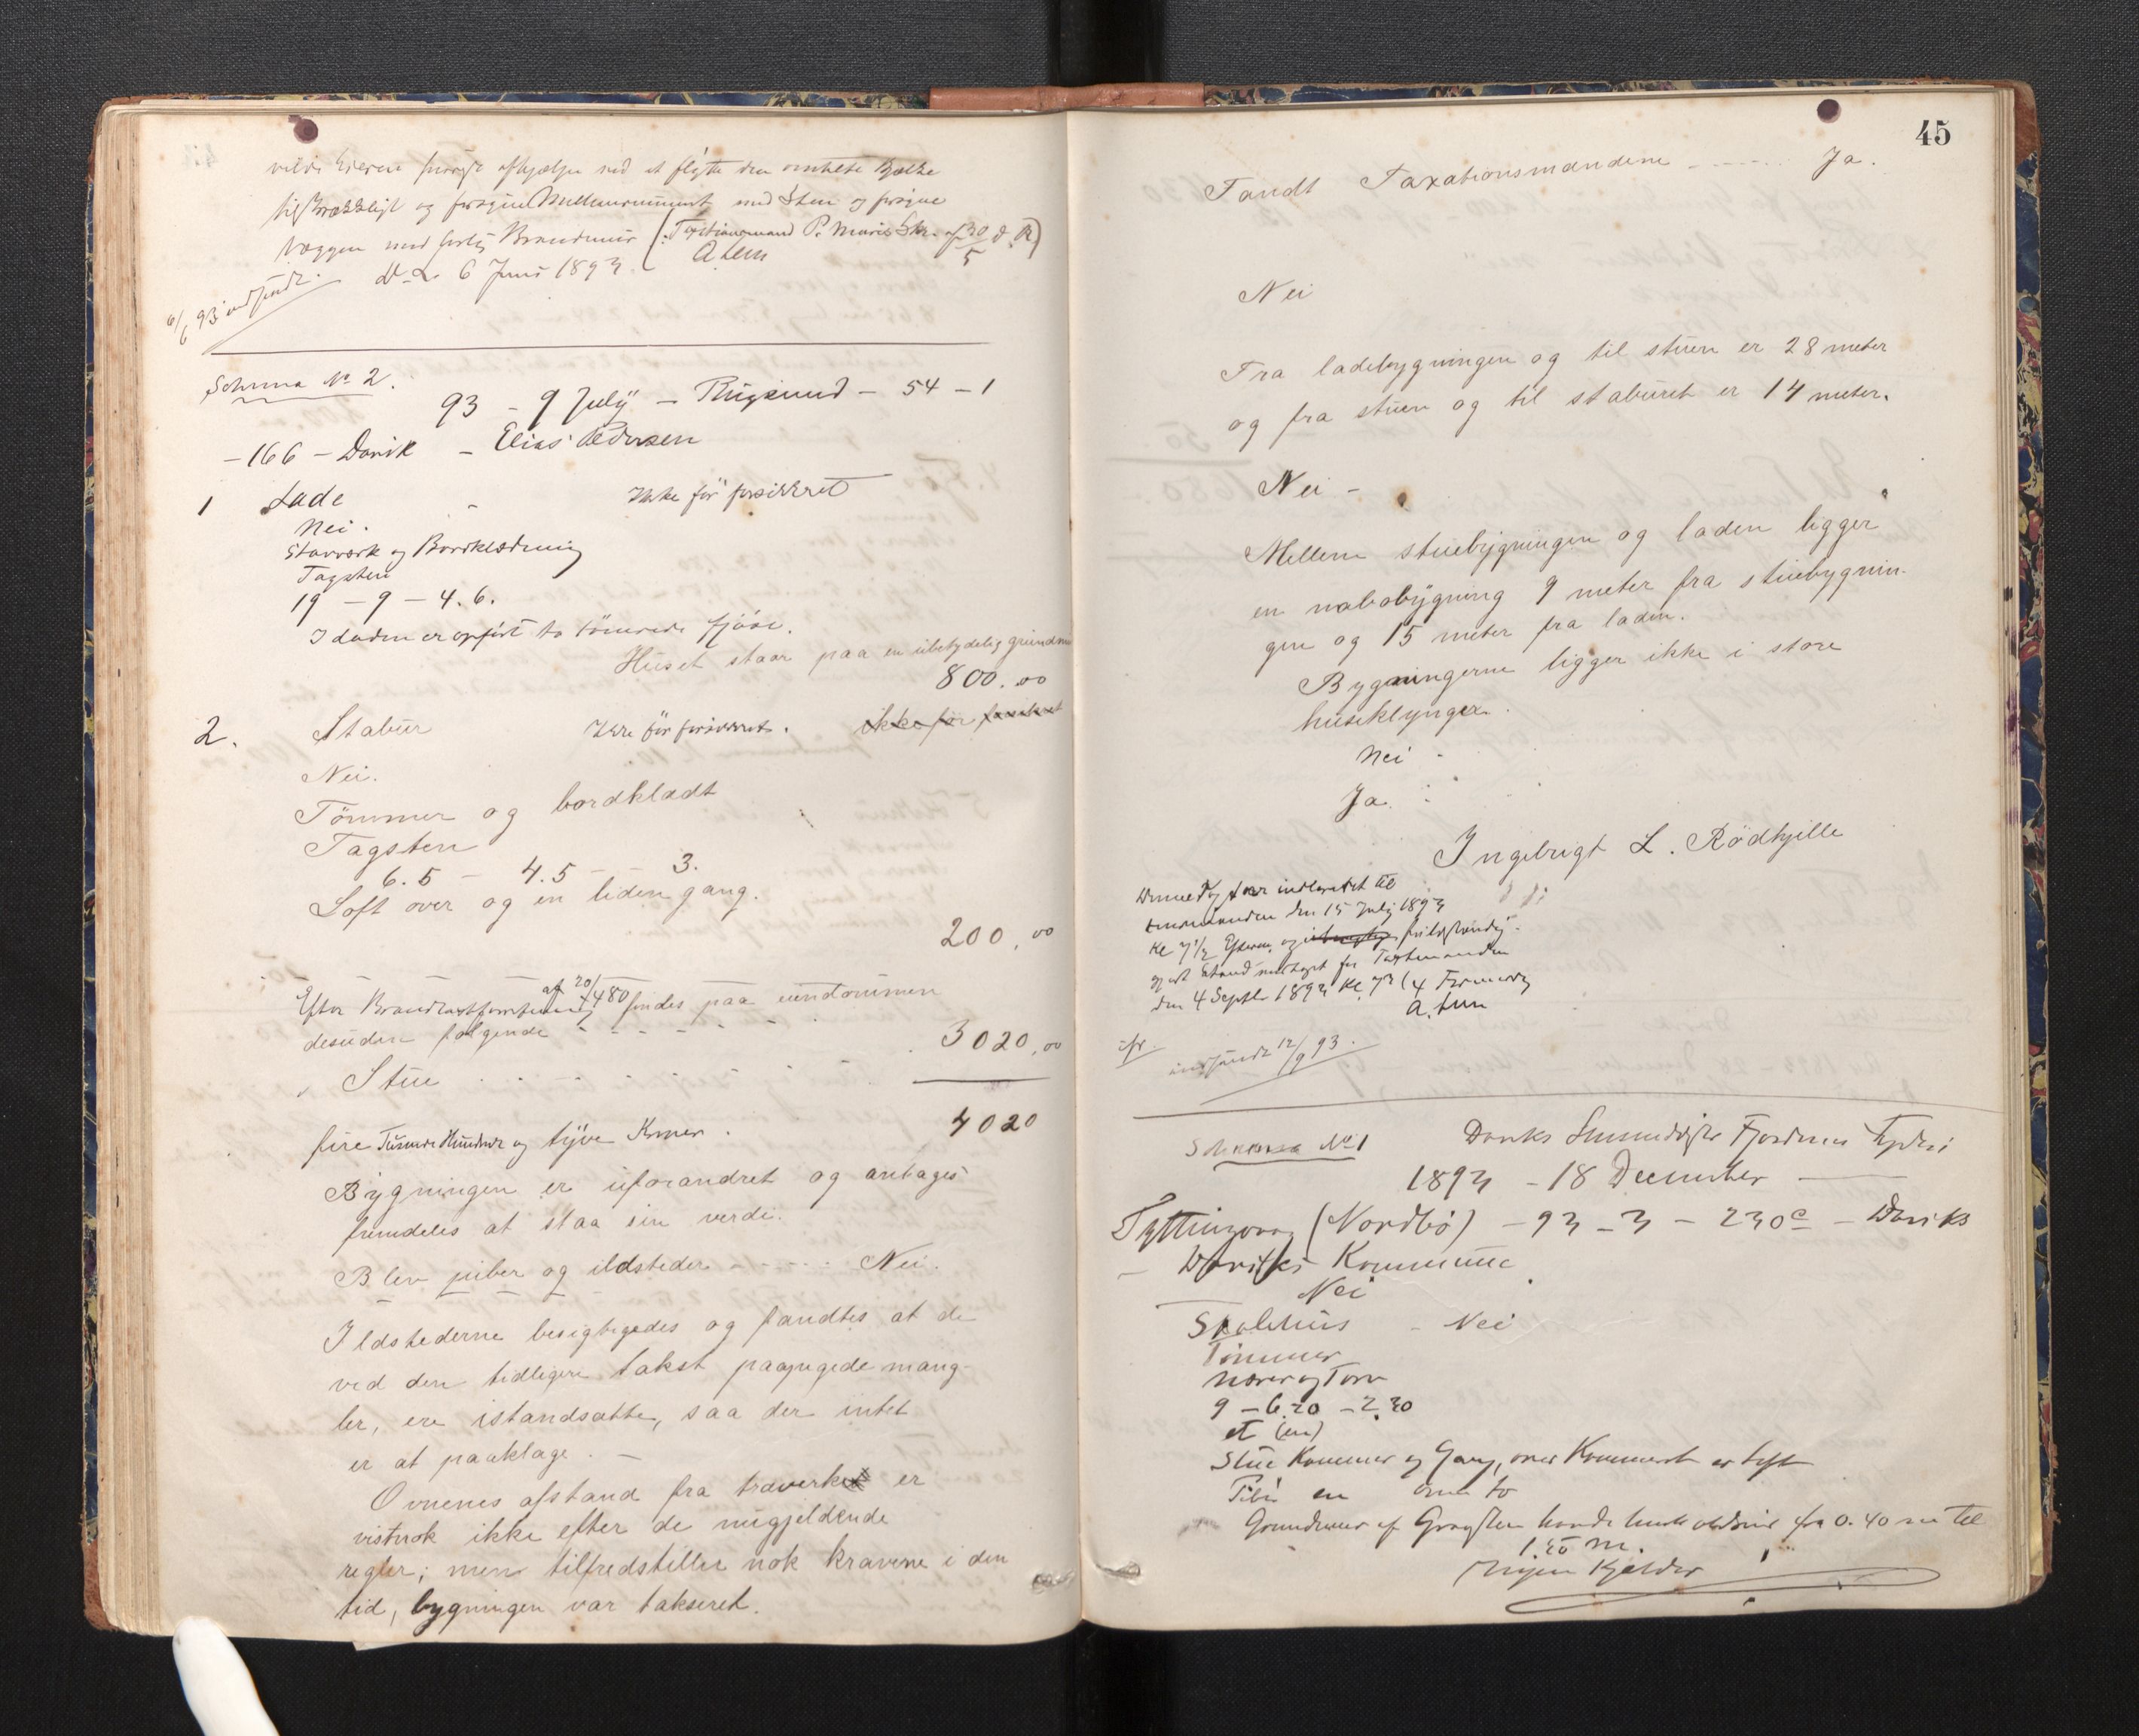 vilde Eieren afhjælpe ved at flytte den omtalte Bjælke
tilstrækkeligt og med Sten og
Væggen med Brandmur (: Taxtionsmand P. af 30/5 d. A)
D. 6 Juni 1893 A Lem
6/6 93 indsendt.
Schema No 2.
93 - 9 July - Rugsund - 54 - 1
- 166 - Davik - Elias Pedersen
1 Lade - Ikke før forsikkret
Nei.
Stavværk og Bordklædning
Tagsten
19 - 9 - 4.6.
I Laden er opført to tømrede fjøse.
Huset staar paa en ubetydelig grundmu
800.00
2. Stabur Ikke før forsikkret. ikke før forsikret
Nei.
Tömmer og bordklædt
Tagsten
6.5 - 4.5 - 3.
Loft over og en liden gang.
200,00
Efter Brandtaxtforretning af 20/7 480 findes paa eiendommen
desuden følgende - - - - - -
3020,00
Stue . . . . . .
4020
fire Tusinde Hundrede og tyve Kroner.
Bygningen er uforandret og antages
fremdeles at staa sin verdi.
Blev piber og ildsteder - - - - Nei.
Ildstederne besigtigedes og fandtes at de
ved den tidligere takst paapegede mang-
ler, ere istandsatte, saa der intet
er at paaklage. -
Ovnenes afstand fra træverket er
vistnok ikke efter de nugjeldende
regler; men tilfredstiller nok kravene i den
tid, bygningen var takseret.
45
Fandt Taxationsmændene - - - - - Ja.
Nei
Fra ladebygningen og til stuen er 28 meter
og fra stuen og til staburet er 14 meter.
Nei -
Mellem stuebygningen og laden ligger
en nabobygning 9 meter fra stuebygnin-
gen og 15 meter fra laden.
Bygningerne ligger ikke i store
huseklynger.
Nei -
Ja.
Ingebrigt L. Rödhjille
indleveret til
den 15 July 1893
Kl 7 1/2 Efterm. og fuldstændig
for Taxtmanden
den 4 Septbr 1893 Kl
A. Lem
indsendt 12/9 93.
Schema No 1 Fjordenes
1893 - 18 December
(Nordbø) - 93 - 3 - 230c - Daviks
- Daviks Kommune
Nei
Skolehus - Nei
Tömmer
Næver og Torv
9 - 6.20 - 2.30
et (en)
Stue Kammer og Gang, over Kammeret er Loft
Pibe en ovne to
Grundmur af Graasten fra 0.40 m til
m.
Ingen Kjelder